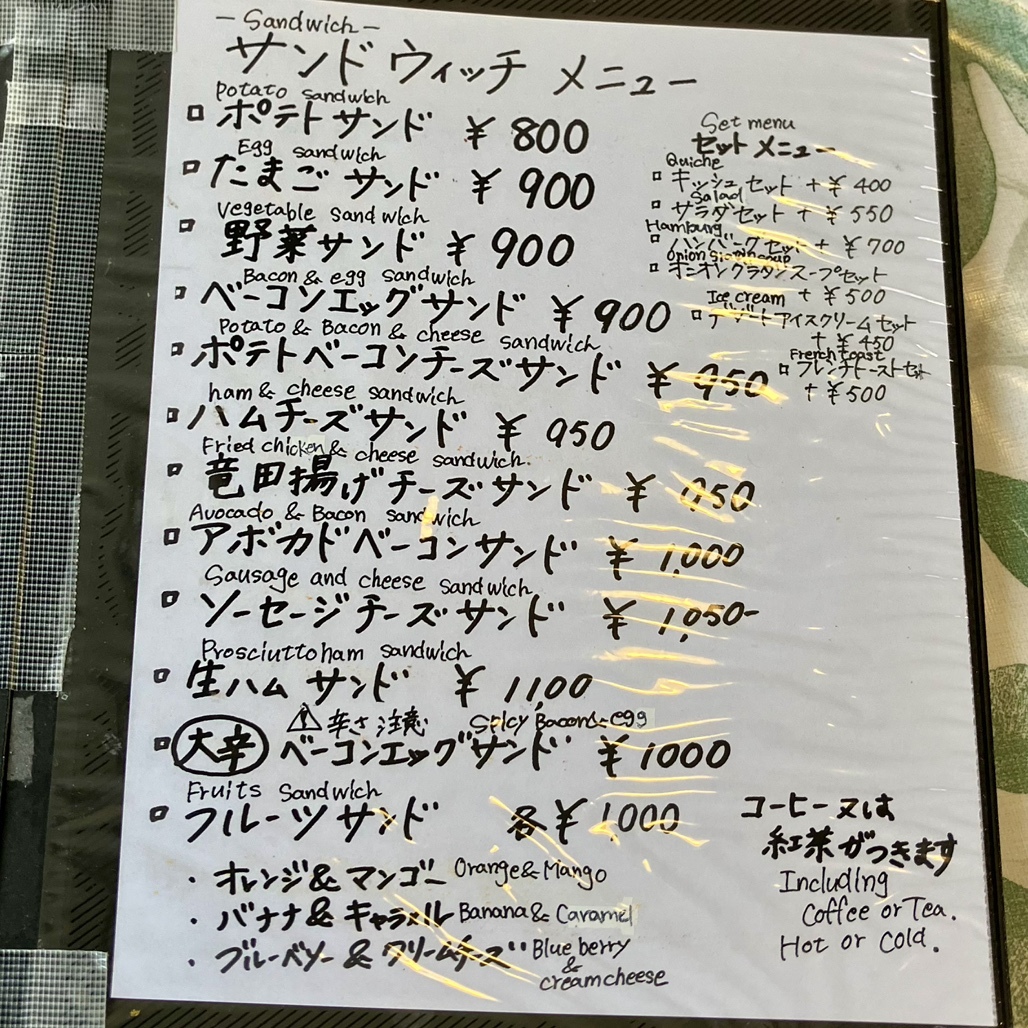 - Sandwich -
サンドウィッチ メニュー
potato sandwich
□ ポテトサンド ¥800
Egg sandwich
□ たまごサンド ¥900
Vegetable sandwich
□ 野菜サンド ¥900
Bacon & egg sandwich
□ ベーコンエッグサンド ¥900
Potato & Bacon & cheese sandwich
□ ポテトベーコンチーズサンド ¥950
ham & cheese sandwich
□ ハムチーズサンド ¥950
Fried chicken & cheese sandwich.
□ 竜田揚げチーズサンド ¥950
Avocado & Bacon sandwich
□ アボカドベーコンサンド ¥1,000
Sausage and cheese sandwich
□ ソーセージチーズサンド ¥1,050-
Prosciutto ham sandwich
□ 生ハムサンド ¥1,100
⚠ 辛さ注意 Spicy Bacon & egg
□ 大辛 ベーコンエッグサンド ¥1000
Fruits sandwich
□ フルーツサンド 各¥1000
・オレンジ&マンゴー Orange & Mango
・バナナ&キャラメル Banana & Caramel
・ブルーベリー&クリームチーズ Blue berry
&
creamcheese
Set menu
セットメニュー
Quiche
□ キッシュセット +¥400
Salad
□ サラダセット + ¥550
Hamburg
□ ハンバーグセット + ¥700
□ オニオングラタンスープセット
+ ¥500
Ice cream
□ デザートアイスクリームセット
+ ¥450
French toast
□ フレンチトーストセット
+ ¥500
コーヒー又は
紅茶がつきます
Including
Coffee or Tea.
Hot or cold.